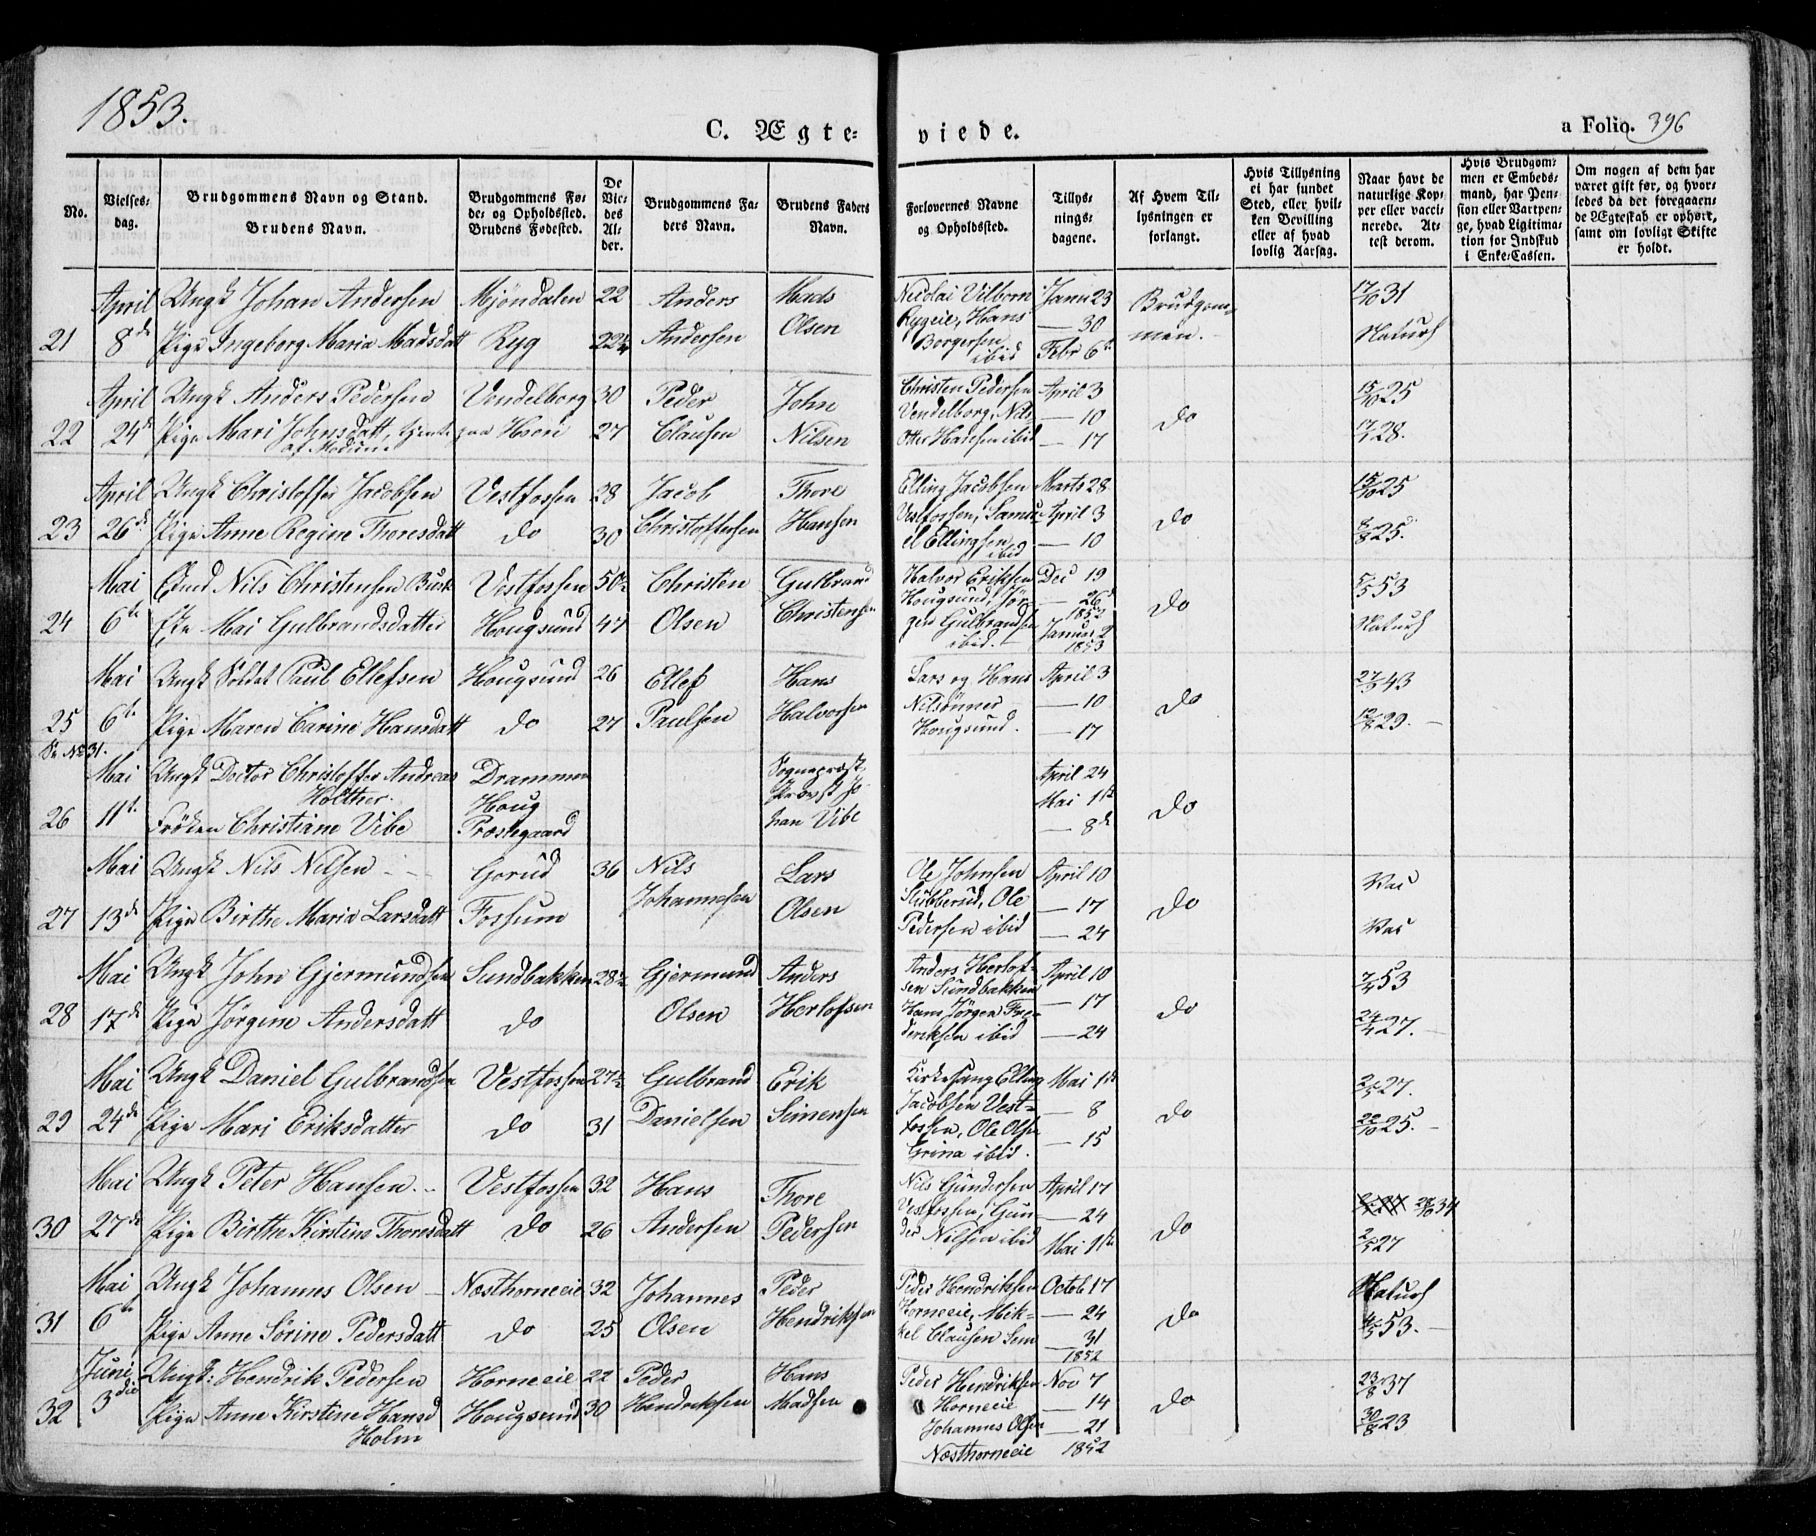 1853.
C. Ægte- viede. a Folio. 396
No.
Vielses-
dag.
Brudgommens Navn og Stand.
Brudens Navn.
Brudgommens Fø-
de- og Opholdssted.
Brudens Fødested.
De
Vie-
des
Al-
der.
Brudgommens Fa-
ders Navn.
Brudens Faders
Navn.
Forlovernes Navne
og Opholdssted.
Tillys-
nings-
dagene.
Af Hvem Til-
lysningen er
forlangt.
Hvis Tillysning
ei har fundet
Sted, eller hvil-
ken Bevilling
eller af hvad
lovlig Aarsag.
Naar havt de
naturlige Kop-
per eller vacci-
nerede. At-
test derom.
Hvis Brudgom-
men er Embeds-
mand, har Pen-
sion eller Vartpen-
ge, hvad Ligitima-
tion for Indskud
i Enke-Cassen.
Om nogen af dem har
været gift før, og hvor-
ledes da det foregaaen-
de Ægteskab er ophørt,
samt om lovligt Skifte
er holdt.
21 April 8de Ungk Johan Andersen Mjøndalen 22 Anders Andersen Mads Olsen
Pige Ingeborg Maria Madsdatt Ryg 22¼
Nicolai Vilborn Rygeie, Hans Borgersen ibid Janu 23 — 30 Febr 6te Brudgommen. 17/10 31 Naturl
22 April 24de Ungk Anders Pedersen Vendelborg 30 Peder Clausen John Nilsen
Pige Mari Johnsdatt, tjente paa Hoen 27
af Modum
Christen Pedersen Vendelborg, Nils Otter Hansen ibid April 3 — 10 — 17 do 15/10 25 17/7 28.
23 April 26de Ungk Christoffer Jacobsen Vestfossen 28 Jacob Christoffersen Thore Hansen
Pige Anne Regine Thoresdatt do 30
Elling Jacobsen Vestfossen, Samuel Ellingsen ibid Marts 28 April 3 — 10 do 15/10 25 6/8 25.
24 Mai 6te Emd Nils Christensen Busk Vestfossen 50½ Christen Olsen Gulbrand Christensen
Eke Mai Gulbrandsdatter Hougsund 47
Halvor Eriksen Hougsund, Jørgen Gulbrandsen ibid. Dec 19 — 26de 1852 Januar 2 1853 do 5/5 53 Naturl
25 Mai 6te Ungk Soldat Paul Ellefsen Hougsund 26 Ellef Paulsen Hans Halvorsen
Pige Maren Carine Hansdatt do 27
Lars og Hans Nilsønner Hougsund. April 3 — 10 — 17 do 27/9 43 12/8 29.
Se No 31.
26 Mai 11te Ungk Doctor Christoffer Andreas Holther. Drammen
Frøken Christiane Vibe Houg Præstegaard Sognepræst, Provst Johan Vibe
April 24 Mai 1ste — 8de do
27 Mai 13de Ungk Nils Nilsen Gorud 36 Nils Johannesen Lars Olsen
Pige Birthe Maria Larsdatt Fossum
Ole Johnsen Stubberud, Ole Pedersen ibid April 10 — 17 — 24 do Vac Vac
28 Mai 17de Ungk John Gjermundsen Sundbakken 28½ Gjermund Olsen Anders Herlofsen
Pige Jørgine Andersdatt do
Anders Herlofsen Sundbakken Hans Jørgen Frederiksen ibid April 10 — 17 — 24 do 2/5 53 24/7 27.
29 Mai 24de Ungk Daniel Gulbrandsen Vestfossen 27½ Gulbrand Danielsen Erik Simensen
Pige Mari Eriksdatter do 31
Kirkesang Elling Jacobsen Vestfossen, Ole Olsen Grina ibid. Mai 1ste — 8 — 15 do 2/5 27. 22/10 25.
30 Mai 27de Ungk Peter Hansen Vestfossen 32 Hans Andersen Thore Pedersen
Pige Birthe Kirstine Thoresdatt do 26
Nils Gundersen Vestfossen, Gunder Nilsen ibid April 17 — 24 Mai 1ste do 34 2/5 27
31 Mai 6te Ungk Johannes Olsen Næsthorneeie 32 Johannes Olsen Peder Hendriksen
Pige Anne Sørine Pedersdatt do 25
Peder Hendriksen Horneeie, Mikkel Clausen Sem Octob 17 — 24 31 1852 do Naturl 53.
32 Juni 3die Ungk: Hendrik Pedersen Horneeie 22 Peder Hendriksen Hans Madsen
Pige Anne Kirstine Hansd Hougsund 30
Holm
Peder Hendriksen Horneeie Johannes Olsen Næsthorneeie Nov 7 — 14 — 21 1852 do 23/8 37 30/8 23